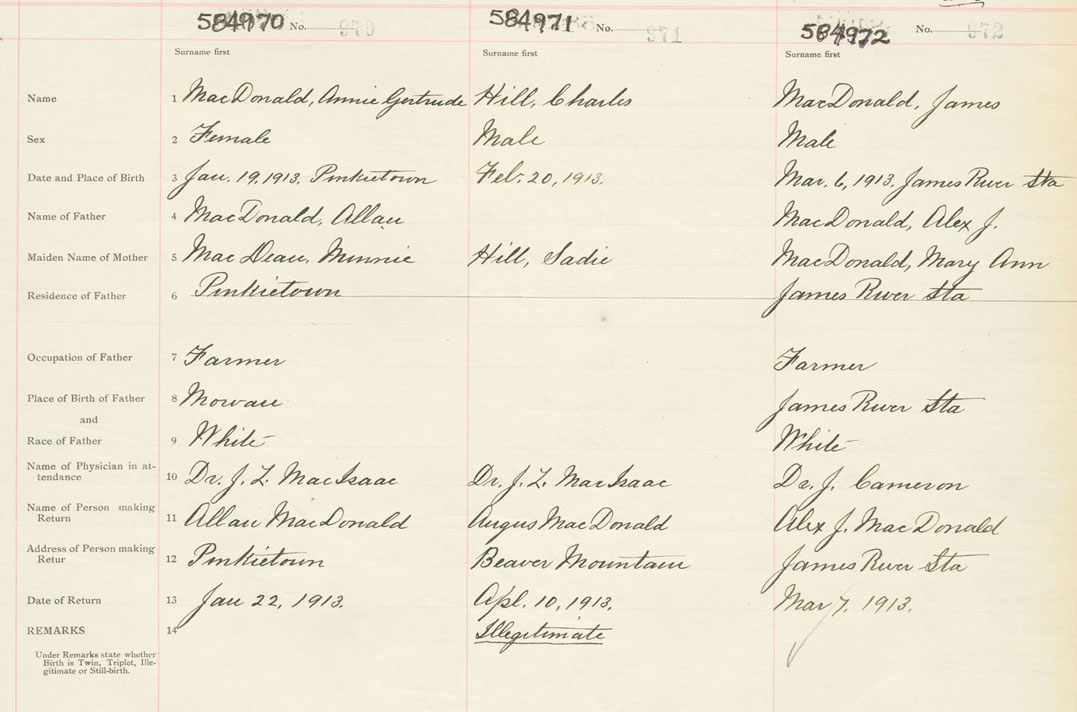 584970 No. 970 584971 No. 971 584972 No. 972
Surname first Surname first Surname first
Name 1 MacDonald, Annie Gertrude Hill, Charles MacDonald, James
Sex 2 Female Male Male
Date and Place of Birth 3 Jan. 19, 1913. Pinkietown Feb. 20, 1913. Mar. 6, 1913. James River Sta
Name of Father 4 MacDonald, Allan MacDonald, Alex J.
Maiden Name of Mother 5 MacDean, Minnie Hill, Sadie MacDonald, Mary Ann
Residence of Father 6 Pinkietown James River Sta
Occupation of Father 7 Farmer Farmer
Place of Birth of Father 8 James River Sta
and
Race of Father 9 White White
Name of Physician in at-
tendance 10 Dr. J. L. MacIsaac Dr. J. L. MacIsaac Dr. J. Cameron
Name of Person making
Return 11 Allan MacDonald Angus MacDonald Alex J. MacDonald
Address of Person making
Retur 12 Pinkietown Beaver Mountain James River Sta
Date of Return 13 Jan 22, 1913. Apl. 10, 1913. Mar 7, 1913.
REMARKS 14 Illegitimate
Under Remarks state whether
Birth is Twin, Triplet, Ille-
gitimate or Still-birth.